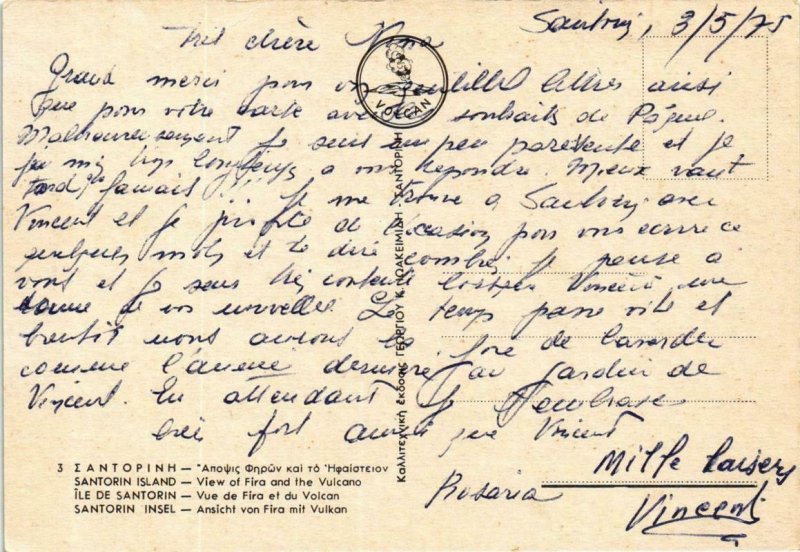 Santorin, 3/5/75
Très chère Nana
Grand merci pour vos gentilles lettres ainsi
que pour votre carte avec souhaits de Pâque.
Malheureusement je suis un peu paresseuse et je
mis trop longtemps a vous repondre. Mieux vaut
tard que jamais !!! Je me trouve a Santorin avec
Vincent et je profite de l'occasion pour vous écrire ce
quelques mots et te dire combien je pense a
vous et je suis très contente lorsque Vincent me
donne de vos nouvelles. Le temps passe vite et
bientôt nous aurons la joie de bavarder
comme l'année dernière au jardin de
Vincent. En attendant je t'embrasse
très fort ainsi que Vincent
Rosaria
Mille baisers
Vincent
VOLCAN
Καλλιτεχνική έκδοσις ΓΕΩΡΓΙΟΥ Κ. ΙΩΑΚΕΙΜΙΔΗ - ΣΑΝΤΟΡΙΝΗ
3 ΣΑΝΤΟΡΙΝΗ — Ἄποψις Φηρῶν καὶ τὸ Ἡφαίστειον
SANTORIN ISLAND — View of Fira and the Vulcano
ÎLE DE SANTORIN — Vue de Fira et du Volcan
SANTORIN INSEL — Ansicht von Fira mit Vulkan